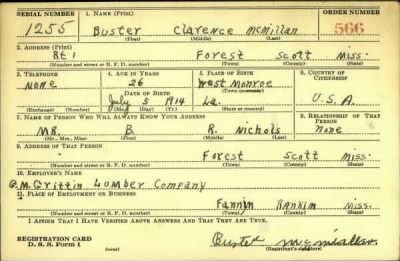 SERIAL NUMBER 1. NAME (Print) ORDER NUMBER
1255 Buster Clarence McMillan 566
(First) (Middle) (Last)
2. ADDRESS (Print)
Rt 1 Forest Scott Miss.
(Number and street or R. F. D. number) (Town) (County) (State)
3. TELEPHONE 4. AGE IN YEARS 5. PLACE OF BIRTH 6. COUNTRY OF CITIZENSHIP
None 26 West Monroe
(Town or county)
DATE OF BIRTH
July 5 1914 La. U.S.A.
(Exchange) (Number) (Mo.) (Day) (Yr.) (State or country)
7. NAME OF PERSON WHO WILL ALWAYS KNOW YOUR ADDRESS 8. RELATIONSHIP OF THAT PERSON
MR. B. R. Nichols None
(Mr., Mrs., Miss) (First) (Middle) (Last)
9. ADDRESS OF THAT PERSON
Forest Scott Miss.
(Number and street or R. F. D. number) (Town) (County) (State)
10. EMPLOYER'S NAME
G.M. Griffin Lumber Company
11. PLACE OF EMPLOYMENT OR BUSINESS
Fannin Rankin Miss.
(Number and street or R. F. D. number) (Town) (County) (State)
I AFFIRM THAT I HAVE VERIFIED ABOVE ANSWERS AND THAT THEY ARE TRUE.
REGISTRATION CARD
D. S. S. Form 1 (over) Buster McMillan
(Registrant's signature)